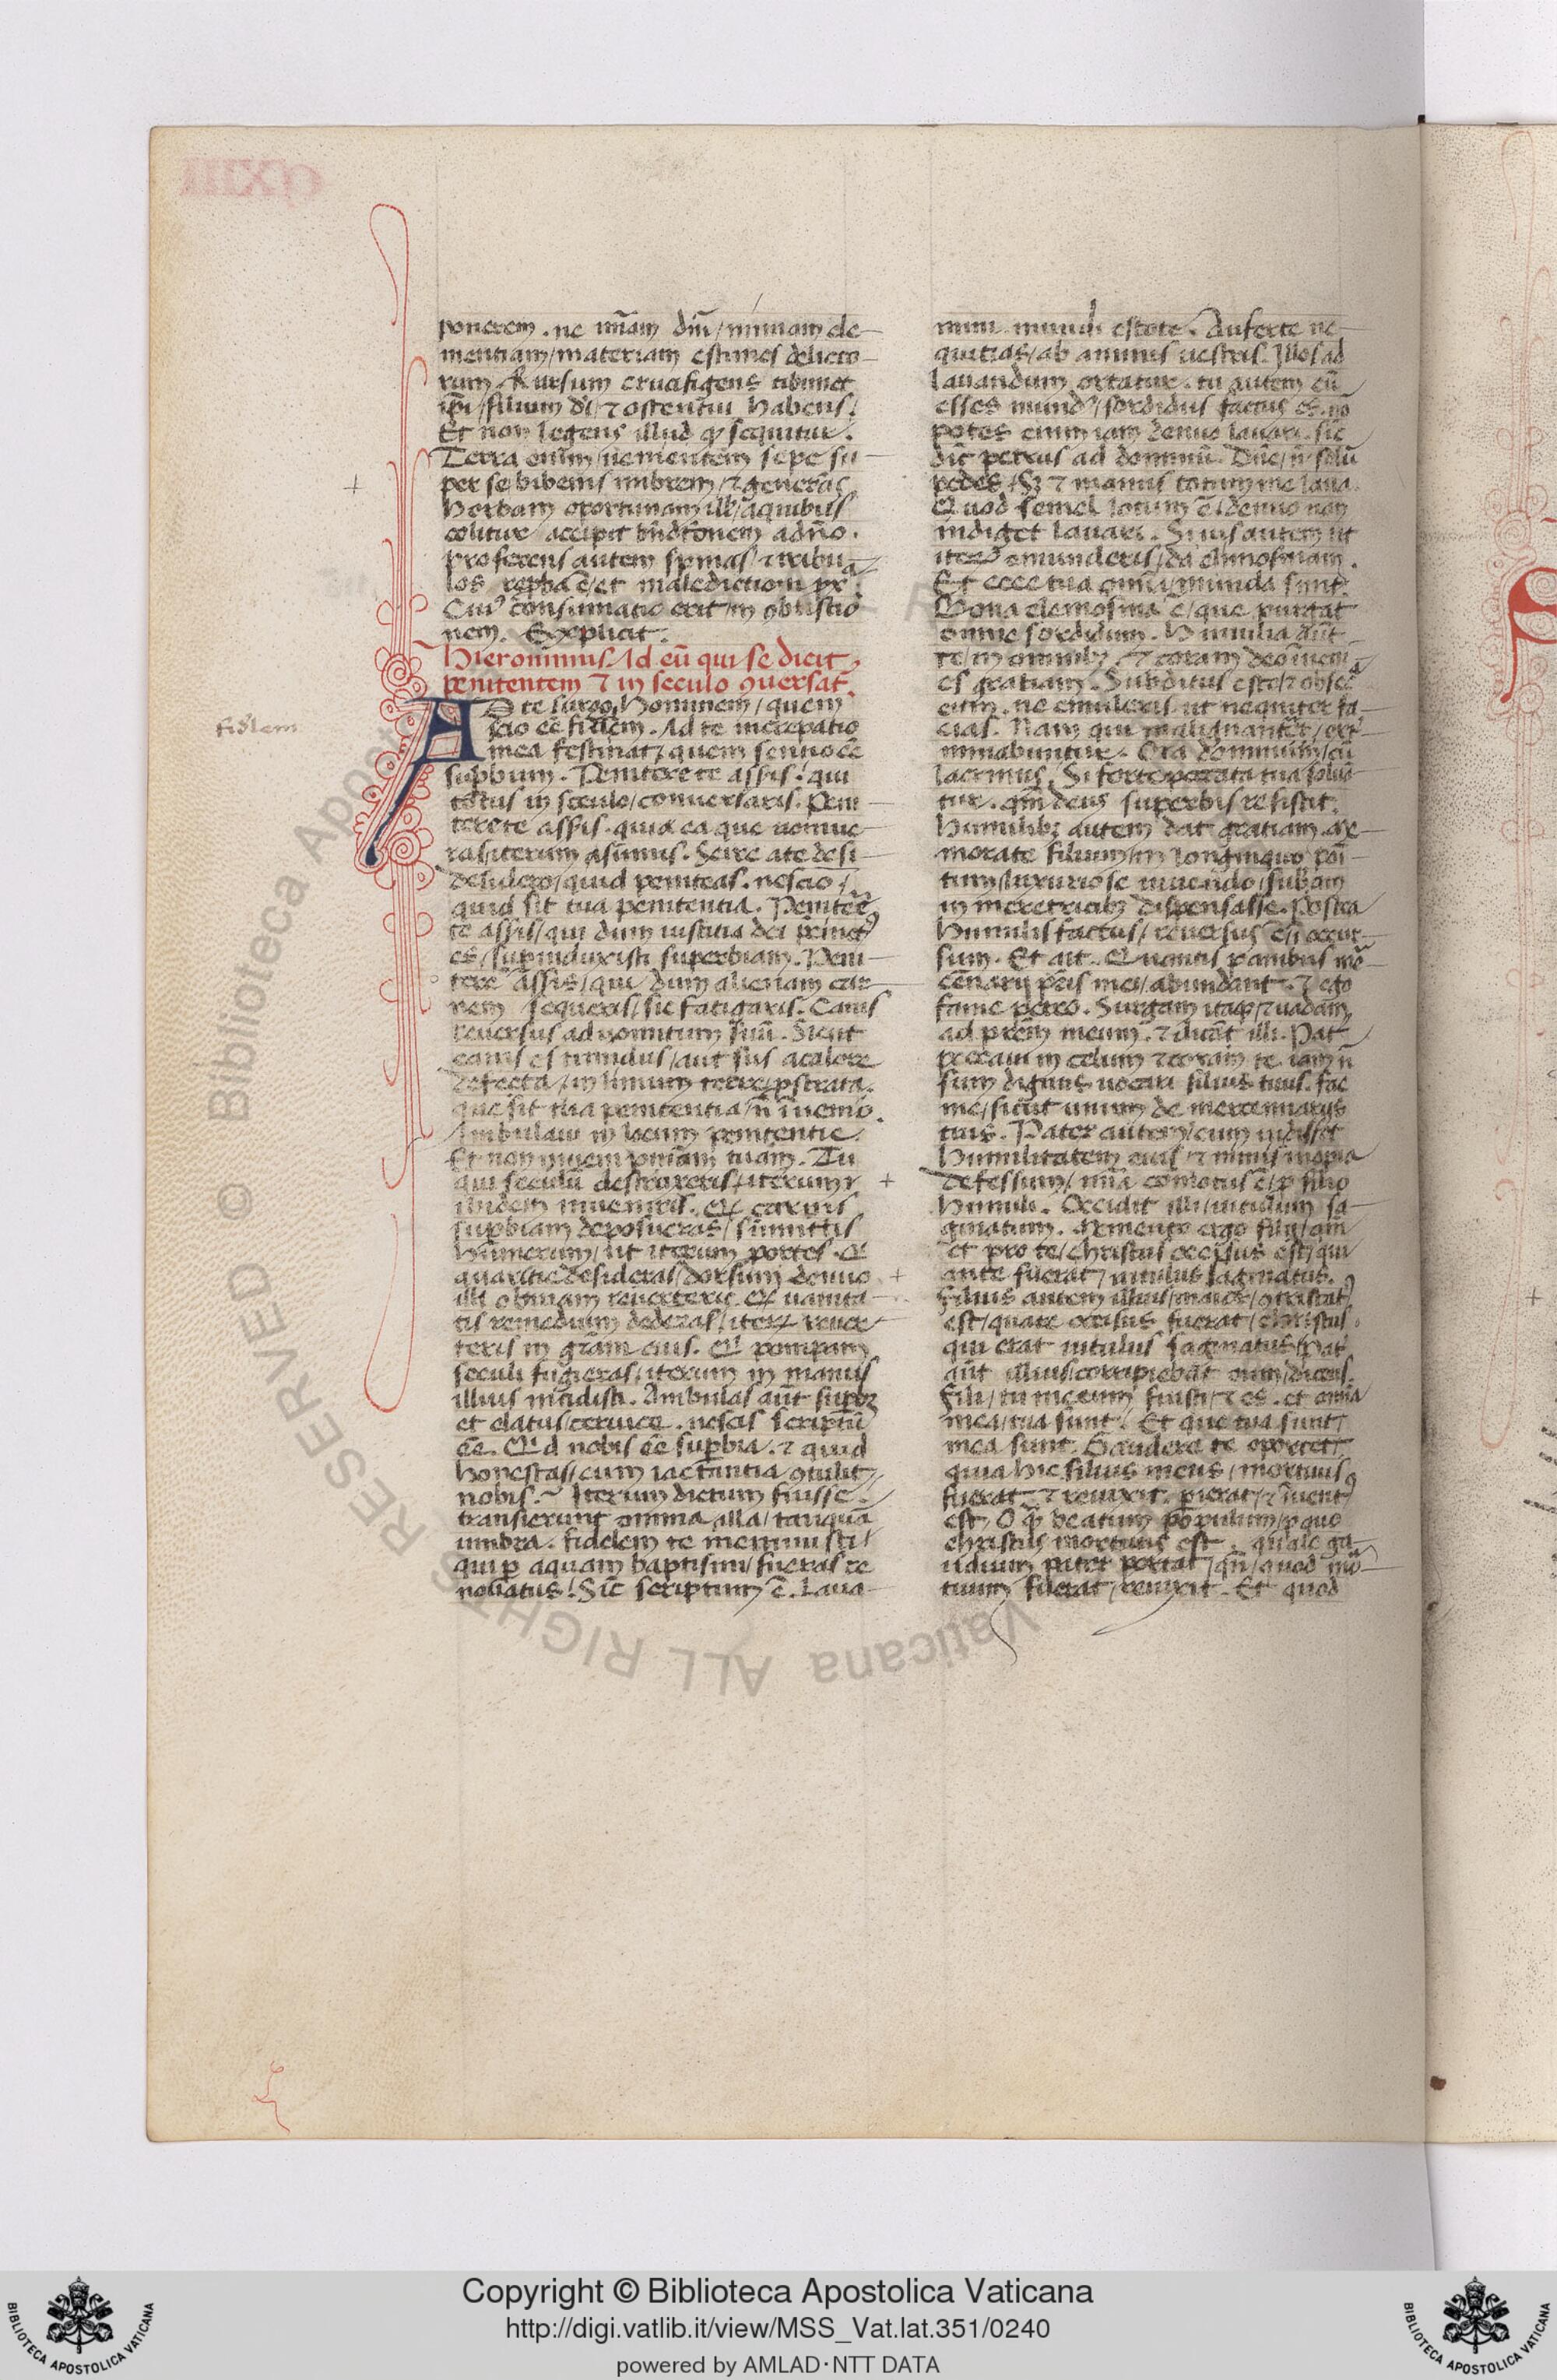 ponerem . ne nimiam diui / nimiam cle-
mentiam / materiam estimes delicto-
rum Rursum crucifigens tibimet
ipi / filium di / ⁊ ostentui habens /
Et non legens illud q̇ sequitur .
Terra enim / uenientem sepe su-
per se bibens imbrem / ⁊ generās
herbam oportunam ill / a quibus
colitur / accipit bn̄dōnem a dn̄o .
proferens autem spinas / ⁊ tribu-
los reproba ē / et maledictioni px̄ᵃ .
Cui⁹ consummatio erit / in ꝯbustiō
nem . Explicit .
Hieronimus Ad eū qui se dicit
penitentem ⁊ in seculo ꝯuersat᷑
AD te surgo / hominem / quem
scio eē fidlem . Ad te increpatio
mea festinat / quem sentio eē
supbum . Penitere te assis / qui
totus in seculo / conuersaris . Peni-
tere te assis . quia ea que uomue-
ras / iterum asumis . Scire a te desi-
desidero / quid peniteas . nescio /
quid sit tua penitentia . Peniter̄
te assis / qui dum iustitia dei
es / supinduxisti superbiam . Peni-
tere assis / qui dum alienam car-
nem sequeris / sic fatigaris . Canis
reuersus ad uomitum suū . Sicut
canis es timidus / aut sus a calore
defecta / in limum terre / pstrata .
que sit tua penitentia / n̄ inuenio .
Ambulaui in locum penitentie .
Et non inueni pniam tuam . Tu
qui seculū destruxeris / iterum ī
ibidem inueniris . Q cararis
supbiam deposueras / sumittis
humerum / ut iterum portes . Q
auaritie desideras / dorsum denuo
illi obuiam reuerteris . Q uanita-
tis remedium dederas / iterꝝ reuer-
teris in grām eius . Q pompam
seculi fugieras / iterum in manus
illius incidisti . Ambulas aūt superꝫ
et elatus / ceruice . nescis scriptū
eē . Qd nobis eē supbia . ⁊ quid
honestas / cum iactantia ꝯtulit
nobis . Iterum dictum fuisse .
transierunt omnia illa / tanquā
umbra . fidelem te meministi /
qui p aquam baptismi / fueras re
nouatus ! Sic scriptum ē . Laua-
mini mundi estote . Auferte ne-
quitias / ab animis uestris . Illos ad
lauandum ortatur . tu autem cū
esses mund⁹ / sordidus factus es . nō
potes enim iam denuo lauari . sic
dic̄ petrus ad dominū . Dn̄e / n̄ solū
pedes / Sꝫ ⁊ manus totum me laua .
Quod semel lotum ē / denuo non
indiget lauari . Si uis autem ut
iterꝝ emunderis / da elimosinam .
Et ecce tua omnia / munda sunt .
Bona elemosina ē / que purgat
omne sordidum . Humilia aūt
te / in omnibꝫ . Et coram deo inueni
es gratiam . Subditus esto / ⁊ obse
eum . ne emuleris ut nequiter fa-
cias . Nam qui malignantēr / ext
minabuntur . Ora dominum / cū
lacrimis . Si forte peccata tua solu-
tur . qm̄ deus superbis resistit .
Humilibꝫ autem dat gratiam . Me-
morare filium / in longinquo posi-
tum / luxuriose uiuendo / subam
in meretricibꝫ dispensasse . Postea
humilis factus / reuersus
sum . Et ait . Quantis panibus m̄
cēnarij pris mei / abundant . ⁊ ego
fame pereo . Surgam itaqꝫ / ⁊ uadam
ad prēm meum . ⁊ dicāt illi . Pat̄
peccaui in celum ⁊ coram te . iam n̄
sum dignus uocari filius tuus . fac
me / sicut unum de mercennarijs
tuis . Pater autem / cum uidisset
humilitatem eius / ⁊ nimis inopia
defessum / mīa comotus ē / p filio
humili . Occidit illi / uitulum sa-
ginatum . Memento ergo
et pro te / christus occisus est / qui
ante fuerat / uitulus saginatus .
Filius autem illius / maior / ꝯtristat⁹
est / quare occisus fuerat / christus
qui erat uitulus saginatus . Pat̄
aūt illius / corripiebāt eum / dicens .
fili / tu mecum fuisti / ⁊ es . et omnia
mea / tua sunt / Et que tua sunt /
mea sunt . Gaudere te oportet /
quia hic filius meus / mortuus
fuerat ⁊ reuixit . pierat / ⁊ inuent⁹
est . O q̄ beatum populum / p quo
christus mortuus est . quale ga-
udium pater portat / qn̄ / quod mo-
tuum fuerat / reuixit . Et quod
fidlem
CXIII
© Biblioteca Apostolica Vaticana ALL RIGHTS RESERVED
Copyright © Biblioteca Apostolica Vaticana
http://digi.vatlib.it/view/MSS_Vat.lat.351/0240
powered by AMLAD·NTT DATA
BIBLIOTECA APOSTOLICA VATICANA
BIBLIOTECA APOSTOLICA VATICANA